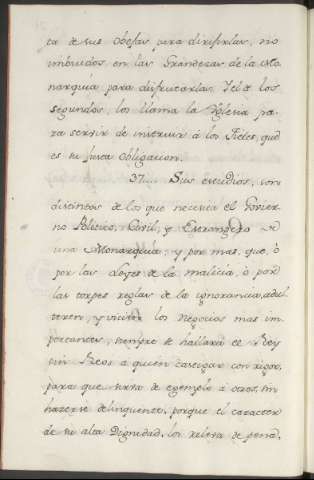 ta de sus Obejas para dirijirlas, no
imbuidos en las Grandezas de la Mo
narquia para disfrutarlas. Y el á los
segundos, los llama la Yglesia pa
ra servir de instruir á los Fieles, qué
es su justa obligacion.
37... Sus estudios, son
distintos de los que necesita el Govier
no Politico, Civil, y Estrangero de
una Monarquia, y por mas, que, ó
por las Leyes de la malicia, ó por
las torpes reglas de la ignorancia, adul
teren, y vicien los Negocios mas im
portantes, siempre se hallará el Rey
sin Reos a quien castigar con rigor,
para que sirva de egemplo á otros, sin
hazerse delinquentes, porque el caracter
de su alta Dignidad, los releva de pena,